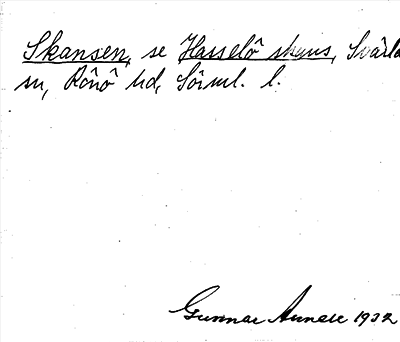 Skansen, se Hasselö skans, Svärta
sn, Rönö hd, Sörml. l.
Gunnar Annell 1932